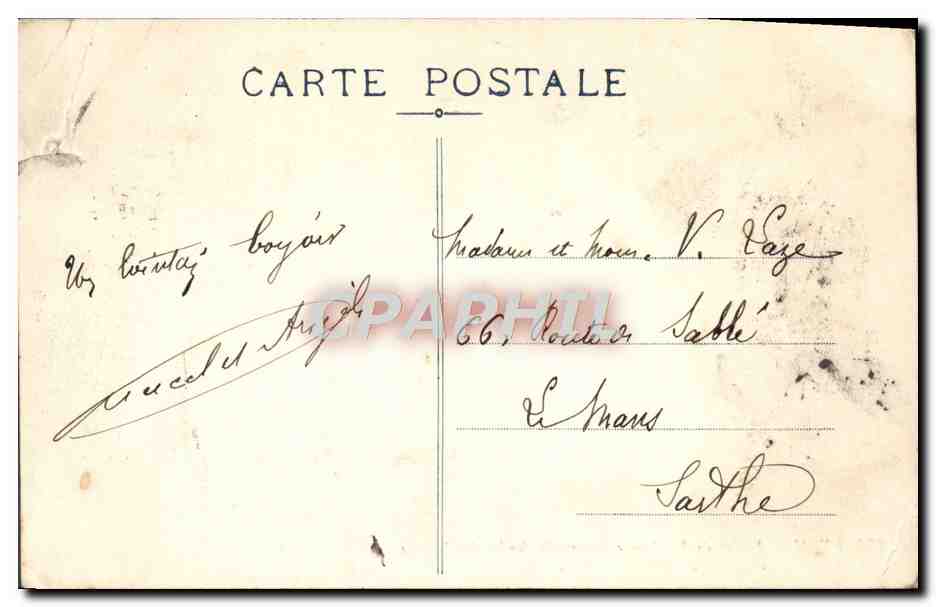 CARTE POSTALE
Un lointain bonjour
Marcel et Angèle
Madame et Mons. V. Vaze
66, Route de Sablé
Le Mans
Sarthe
CPAPHIL